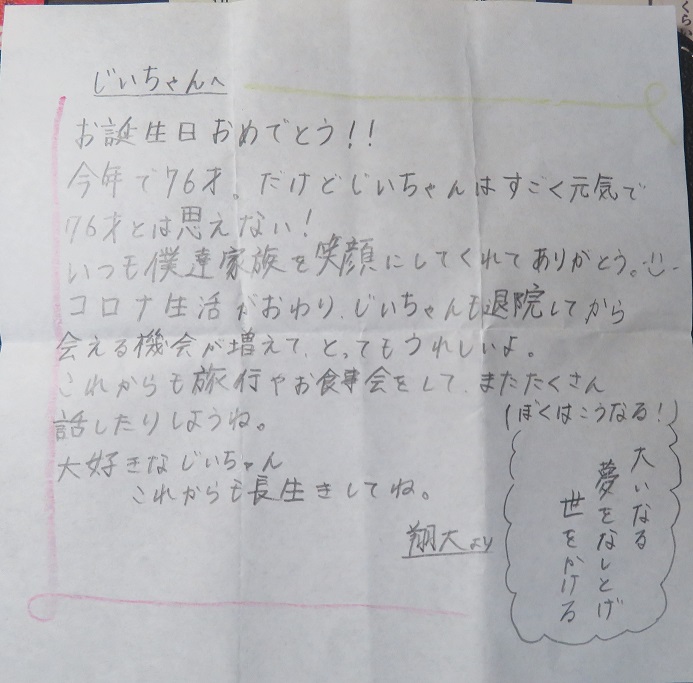 じいちゃんへ
お誕生日おめでとう!!
今年で76才。だけどじいちゃんはすごく元気で
76才とは思えない!
いつも僕達家族を笑顔にしてくれてありがとう。
コロナ生活がおわり、じいちゃんも退院してから
会える機会が増えて、とってもうれしいよ。
これからも旅行やお食事会をして、またたくさん
話したりしようね。
大好きなじいちゃん
これからも長生きしてね。
翔大より
(ぼくはこうなる!)
大いなる
夢をなしとげ
世をかける
くら